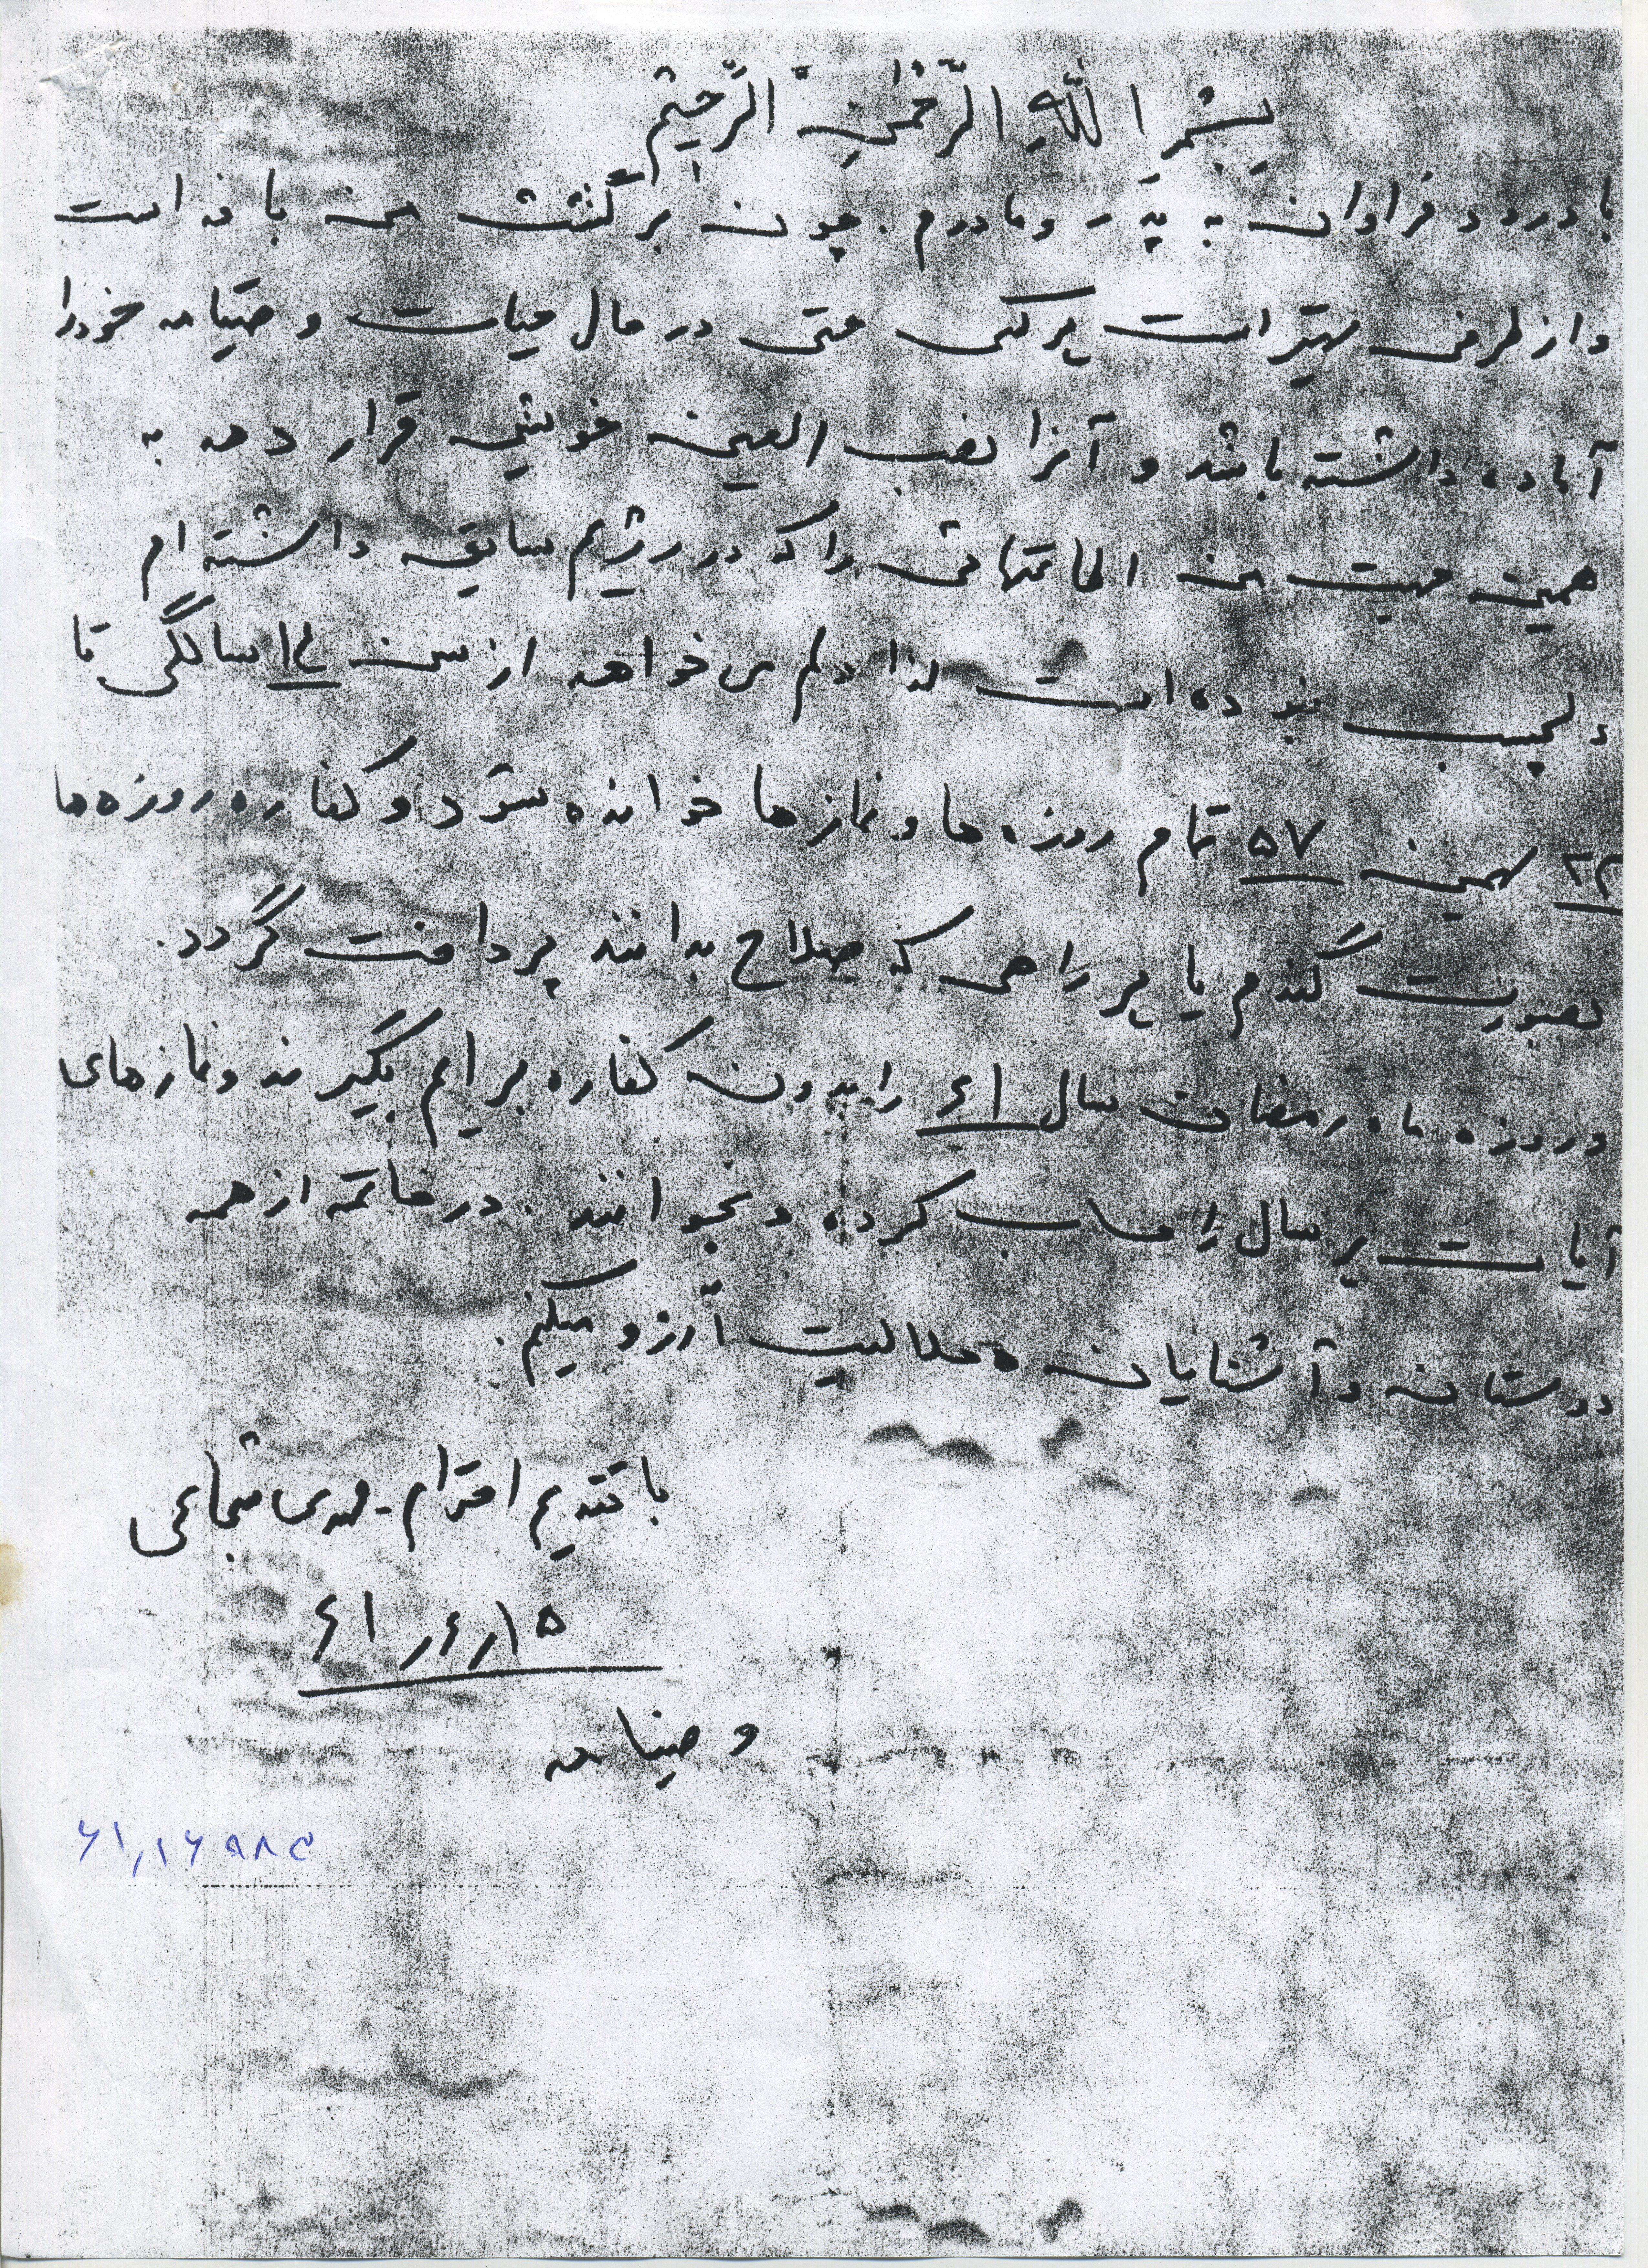 بِسْمِ اللهِ الرَّحْمنِ الرَّحیْمِ
با درود فراوان به پدر و مادرم. چون برگشت من با خداست
و از طرفی بهتر است هر کسی حتی در حال حیات وصیتنامه خود را
آماده داشته باشد و آنرا نصب العین خویش قرار دهد به
همین جهت من اطاعتهائی را که در رژیم سابق داشته ام
دلچسب نبوده است لذا دلم می خواهد از سن ۱۴ سالگی تا
۲۲ بهمن ۵۷ تمام روزه ها و نمازها خوانده شود و کفاره روزه ها
بصورت گندم یا هر راهی که صلاح بدانند پرداخت گردد.
و روزه ماه رمضان سال ۶۱ را بدون کفاره برایم بگیرند و نمازهای
آیات هر سال را حساب کرده و بخوانند. در خاتمه از همه
دوستان و آشنایان حلالیت آرزو میکنم.
با تقدیم احترام - مهدی شجاعی
۱۵ر۴ر۶۱
وصیتنامه